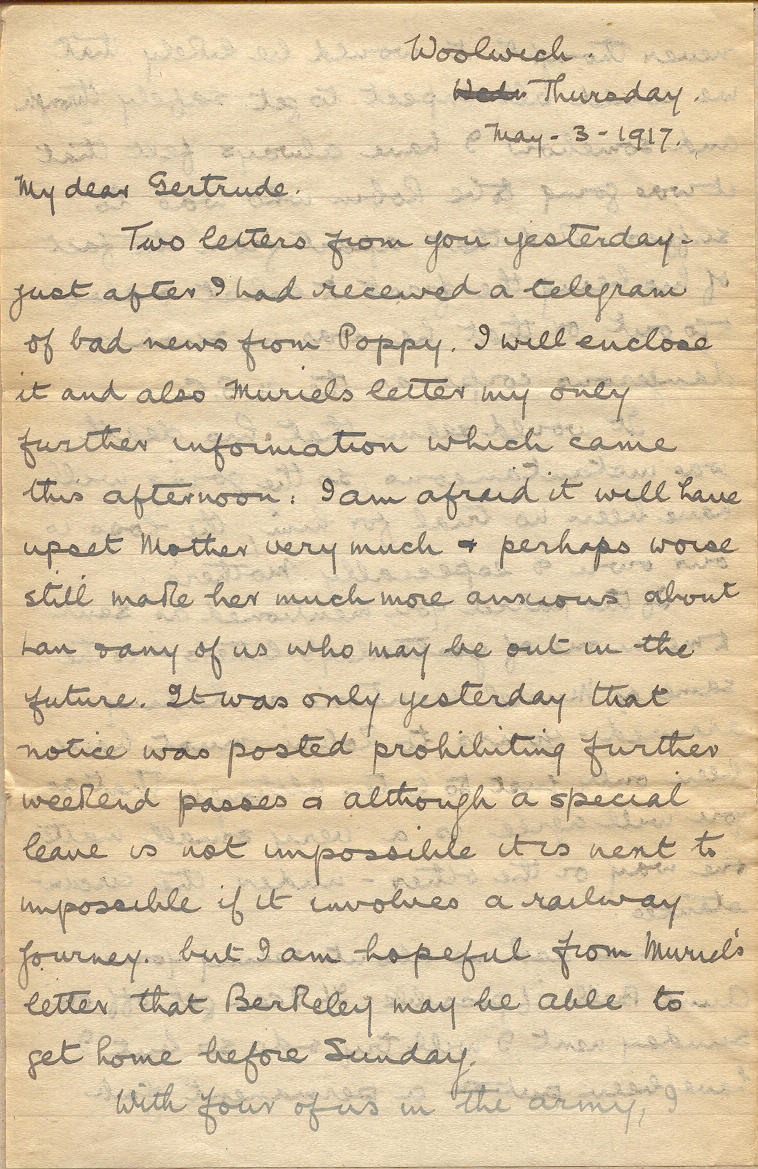 Woolwich.
Thursday.
May - 3 - 1917.
My dear Gertrude.
Two letters from you yesterday -
just after I had received a telegram
of bad news from Poppy. I will enclose
it and also Muriels letter my only
further information which came
this afternoon. I am afraid it will have
upset Mother very much & perhaps worse
still make her much more anxious about
Ian & any of us who may be out in the
future. It was only yesterday that
notice was posted prohibiting further
weekend passes & although a special
leave is not impossible it is next to
impossible if it involves a railway
journey. but I am hopeful from Muriel's
letter that Berkeley may be able to
get home before Sunday.
With four of us in the army,